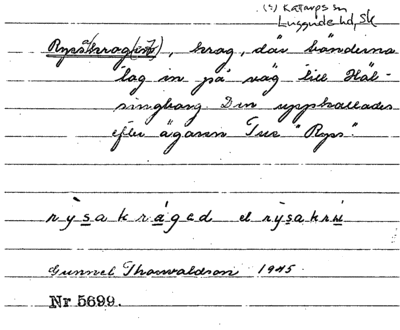 (?) Kattarps sn
Luggude hd, Sk
Ryssakrog(en), krog, där bönderna
låg in på väg till Häl-
singborg Den uppkallades
efter ägaren Ture "Ryss".
rỳsakrågəd el rỳsakrɯ
Gunnel Thorwaldson 1945.
Nr 5699.